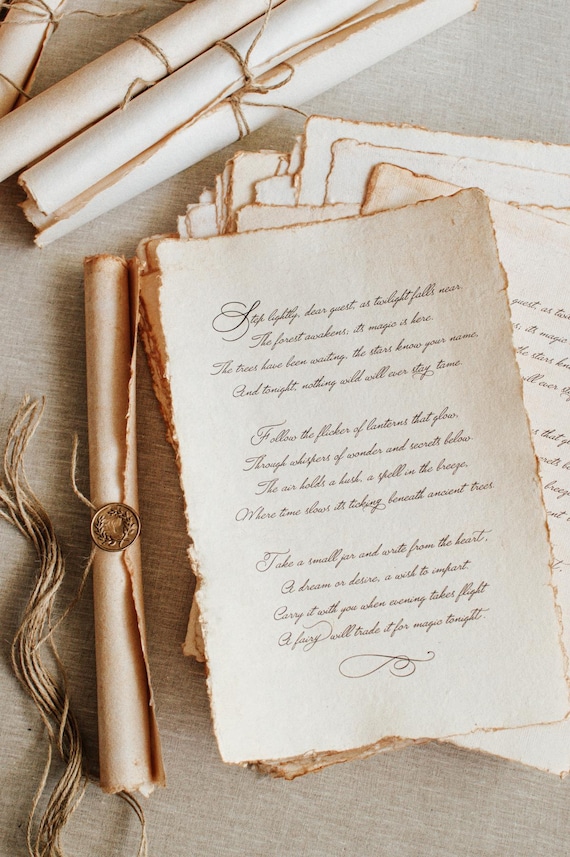 Step lightly, dear guest, as twilight falls near.
The forest awakens; its magic is here.
The trees have been waiting, the stars know your name,
And tonight, nothing wild will ever stay tame.
Follow the flicker of lanterns that glow,
Through whispers of wonder and secrets below.
The air holds a hush, a spell in the breeze,
Where time slows its ticking beneath ancient trees.
Take a small jar and write from the heart,
A dream or desire, a wish to impart.
Carry it with you when evening takes flight
A fairy will trade it for magic tonight.
guest, as tw
its magic
the stars kn
will ever st